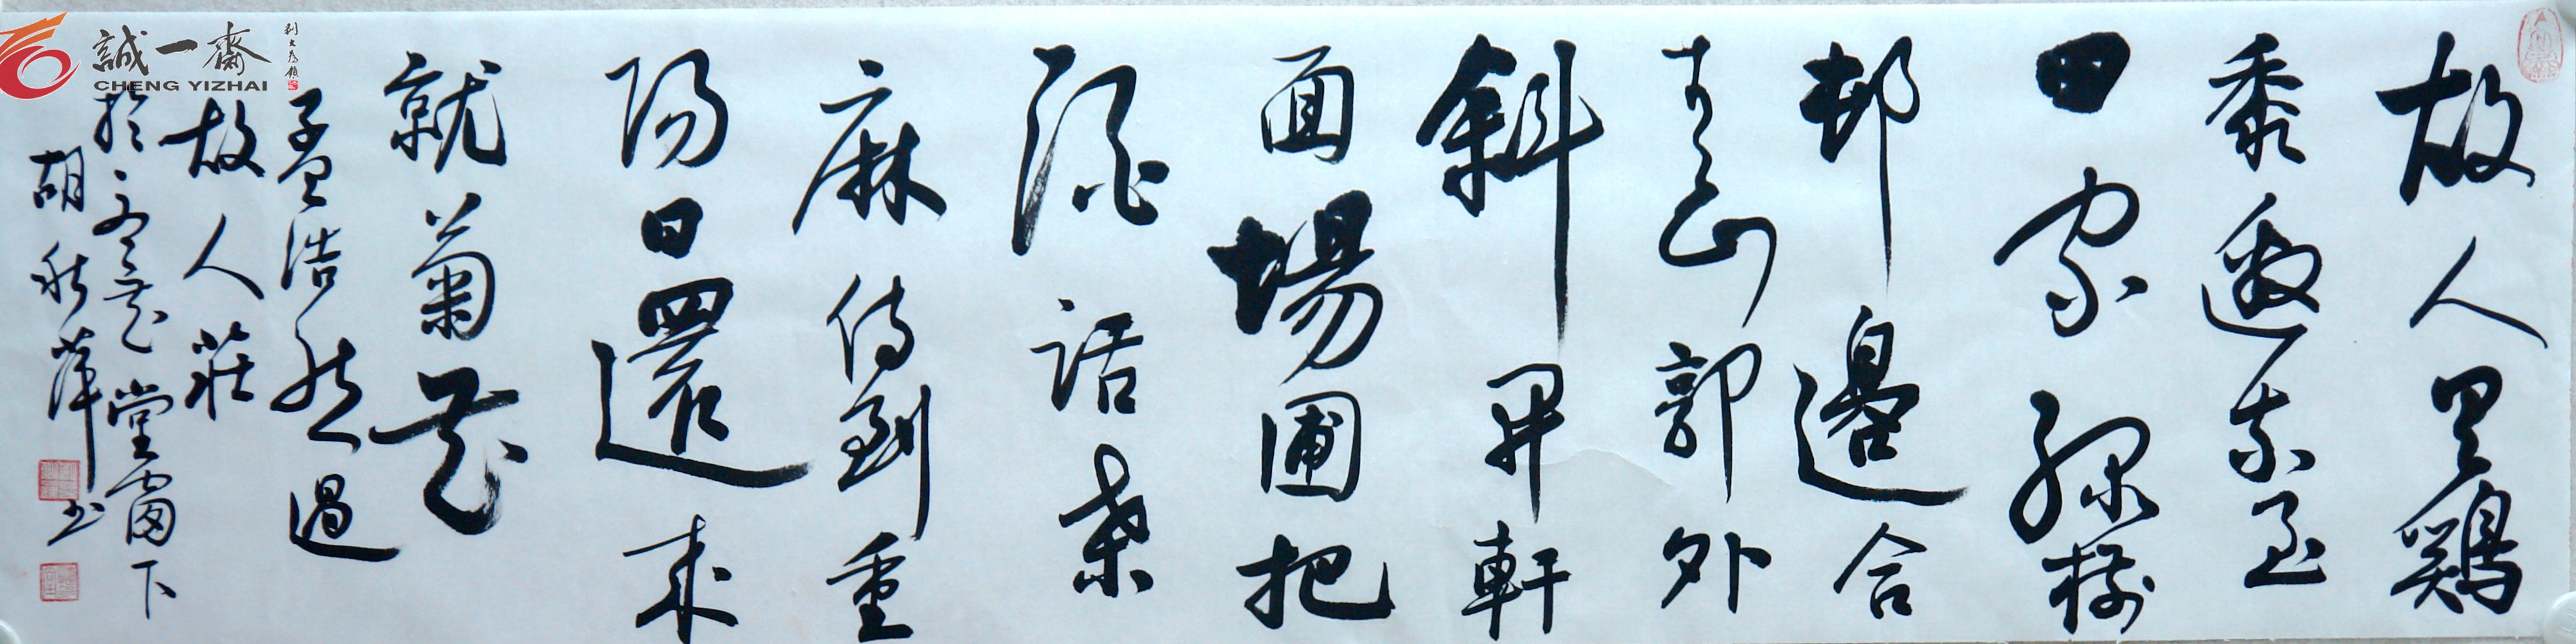 故人具鷄
黍邀我至
田家緑樹
邨邊合
青山郭外
斜開軒
面場圃把
酒話桑
麻待到重
陽日還来
就菊花
孟浩然過
故人莊
於 花堂窗下
胡秋萍书
誠一齋
CHENG YIZHAI